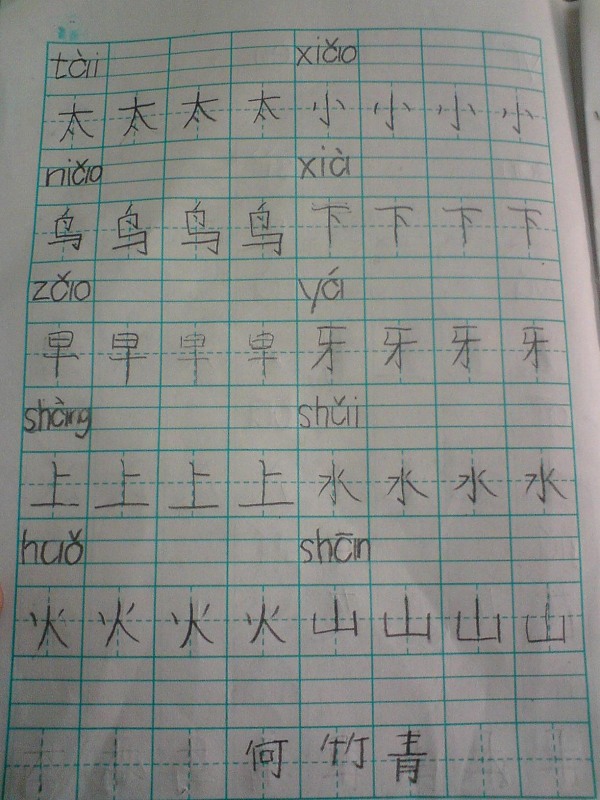 tài xiǎo
太 太 太 太 小 小 小 小
niǎo xià
鸟 鸟 鸟 鸟 下 下 下 下
zǎo yá
早 早 早 早 牙 牙 牙 牙
shàng shuǐ
上 上 上 上 水 水 水 水
huǒ shān
火 火 火 火 山 山 山 山
何 竹 青